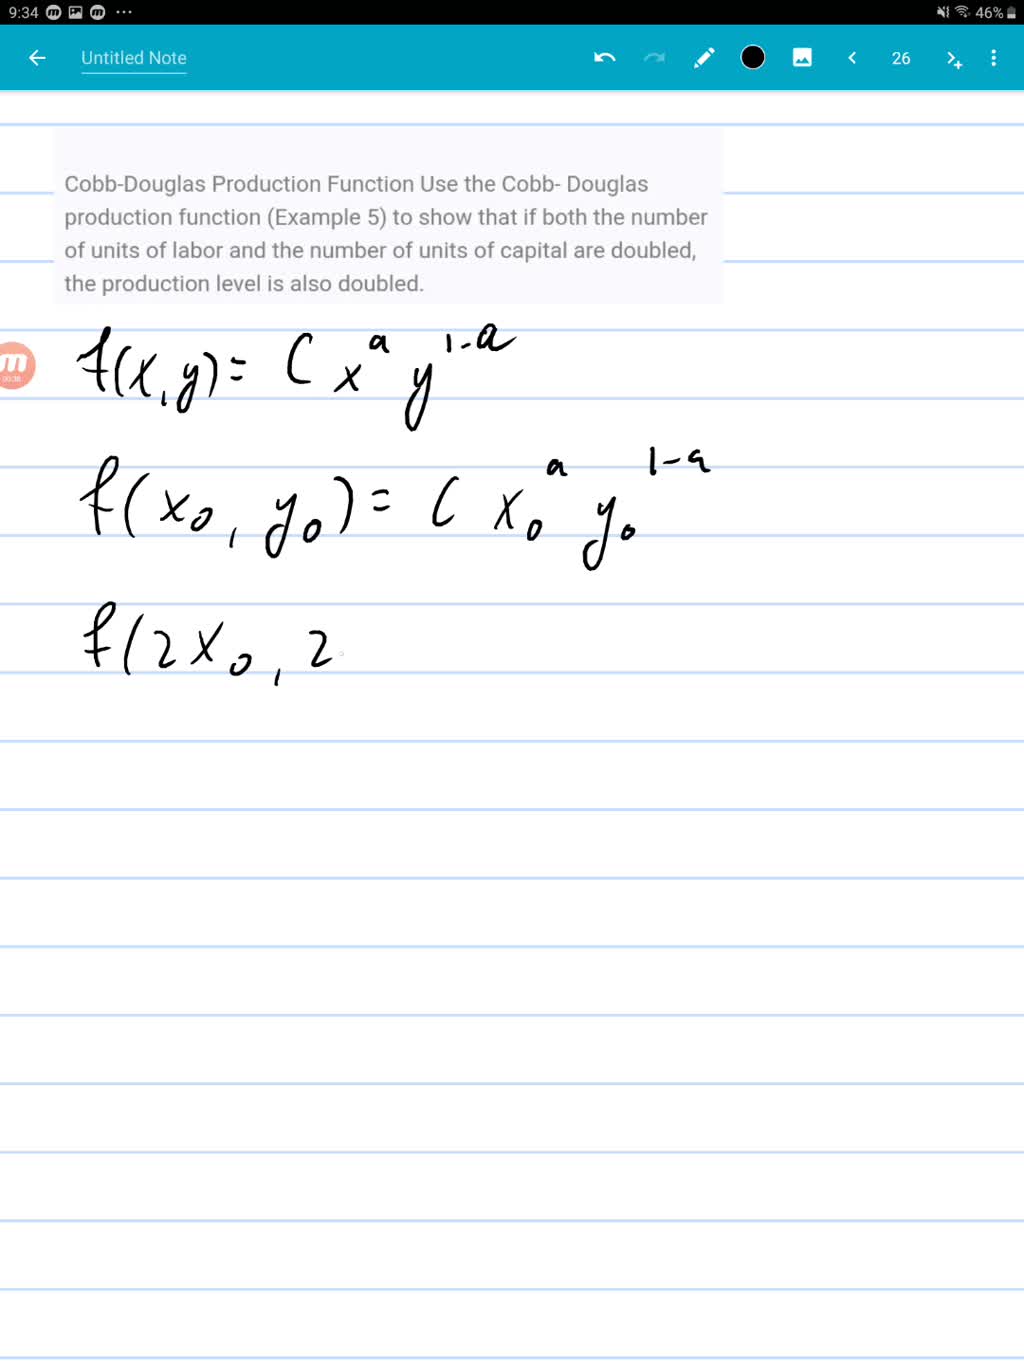 9:34 m m ... 46%
Untitled Note 26
Cobb-Douglas Production Function Use the Cobb- Douglas
production function (Example 5) to show that if both the number
of units of labor and the number of units of capital are doubled,
the production level is also doubled.
f(x,y)= C x^a y^1-a
m
00:38
f(x₀, y₀)= C x₀^a y₀^1-a
f(2x₀, 2